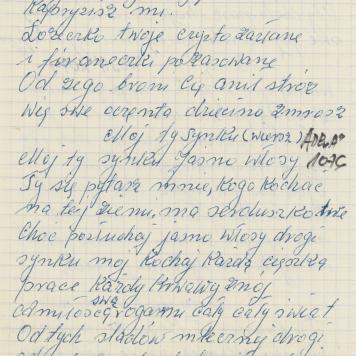 Kaprysisz mi.
Łóżeczko twoje czysto zasłane
i firaneczki pozasuwane
Od złego broni Cię anioł stróż
Więc swe oczęta dziecino zmróż
Mój ty synku (wiersz)
Mój ty synku jasno włosy
Ty się pytasz mnie, kogo kochać
na tej ziemi, ma serduszko twe
Choć posłuchaj jasno włosy drogi
synku mój Kochaj każdą ciężką
prace Każdy krwawy znój
swą
cały cały świat
Od tych śladów mlecznej drogi